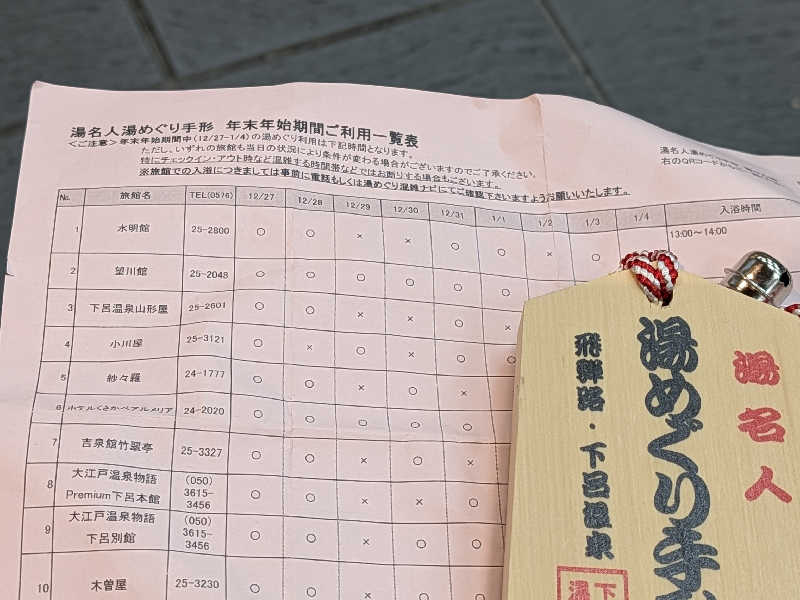 湯名人湯めぐり手形 年末年始期間ご利用一覧表
＜ご注意＞年末年始期間中(12/27-1/4)の湯めぐり利用は下記時間となります。
ただし、いずれの旅館も当日の状況により条件が変わる場合がございますのでご了承ください。
特にチェックイン・アウト時など混雑する時間帯などではお断りする場合もございます。
※旅館での入浴につきましては事前に電話もしくは湯めぐり混雑ナビにてご確認下さいますようお願いいたします。
湯名人湯め
右のQRコードか
No. 旅館名 TEL(0576) 12/27 12/28 12/29 12/30 12/31 1/1 1/2 1/3 1/4 入浴時間
1 水明館 25-2800 ○ ○ × × ○ ○ × ○ 13:00～14:00
2 望川館 25-2048 ○ ○ ○ ○ ○ ○
3 下呂温泉山形屋 25-2601 ○ ○ × × ○ ×
4 小川屋 25-3121 ○ × ○ × ○ ○
5 紗々羅 24-1777 ○ ○ × ○ ×
6 ホテルくさかべアルメリア 24-2020 ○ ○ ○ ○ ○
7 吉泉館竹翠亭 25-3327 ○ ○ × ○ ×
8 大江戸温泉物語 Premium下呂本館 (050) 3615-3456 ○ ○ × × ○
9 大江戸温泉物語 下呂別館 (050) 3615-3456 ○ ○ × ○ ○
10 木曽屋 25-3230 ○ ○ × ○ ○
湯名人
湯めぐり手
飛騨路・下呂温泉
下
湯